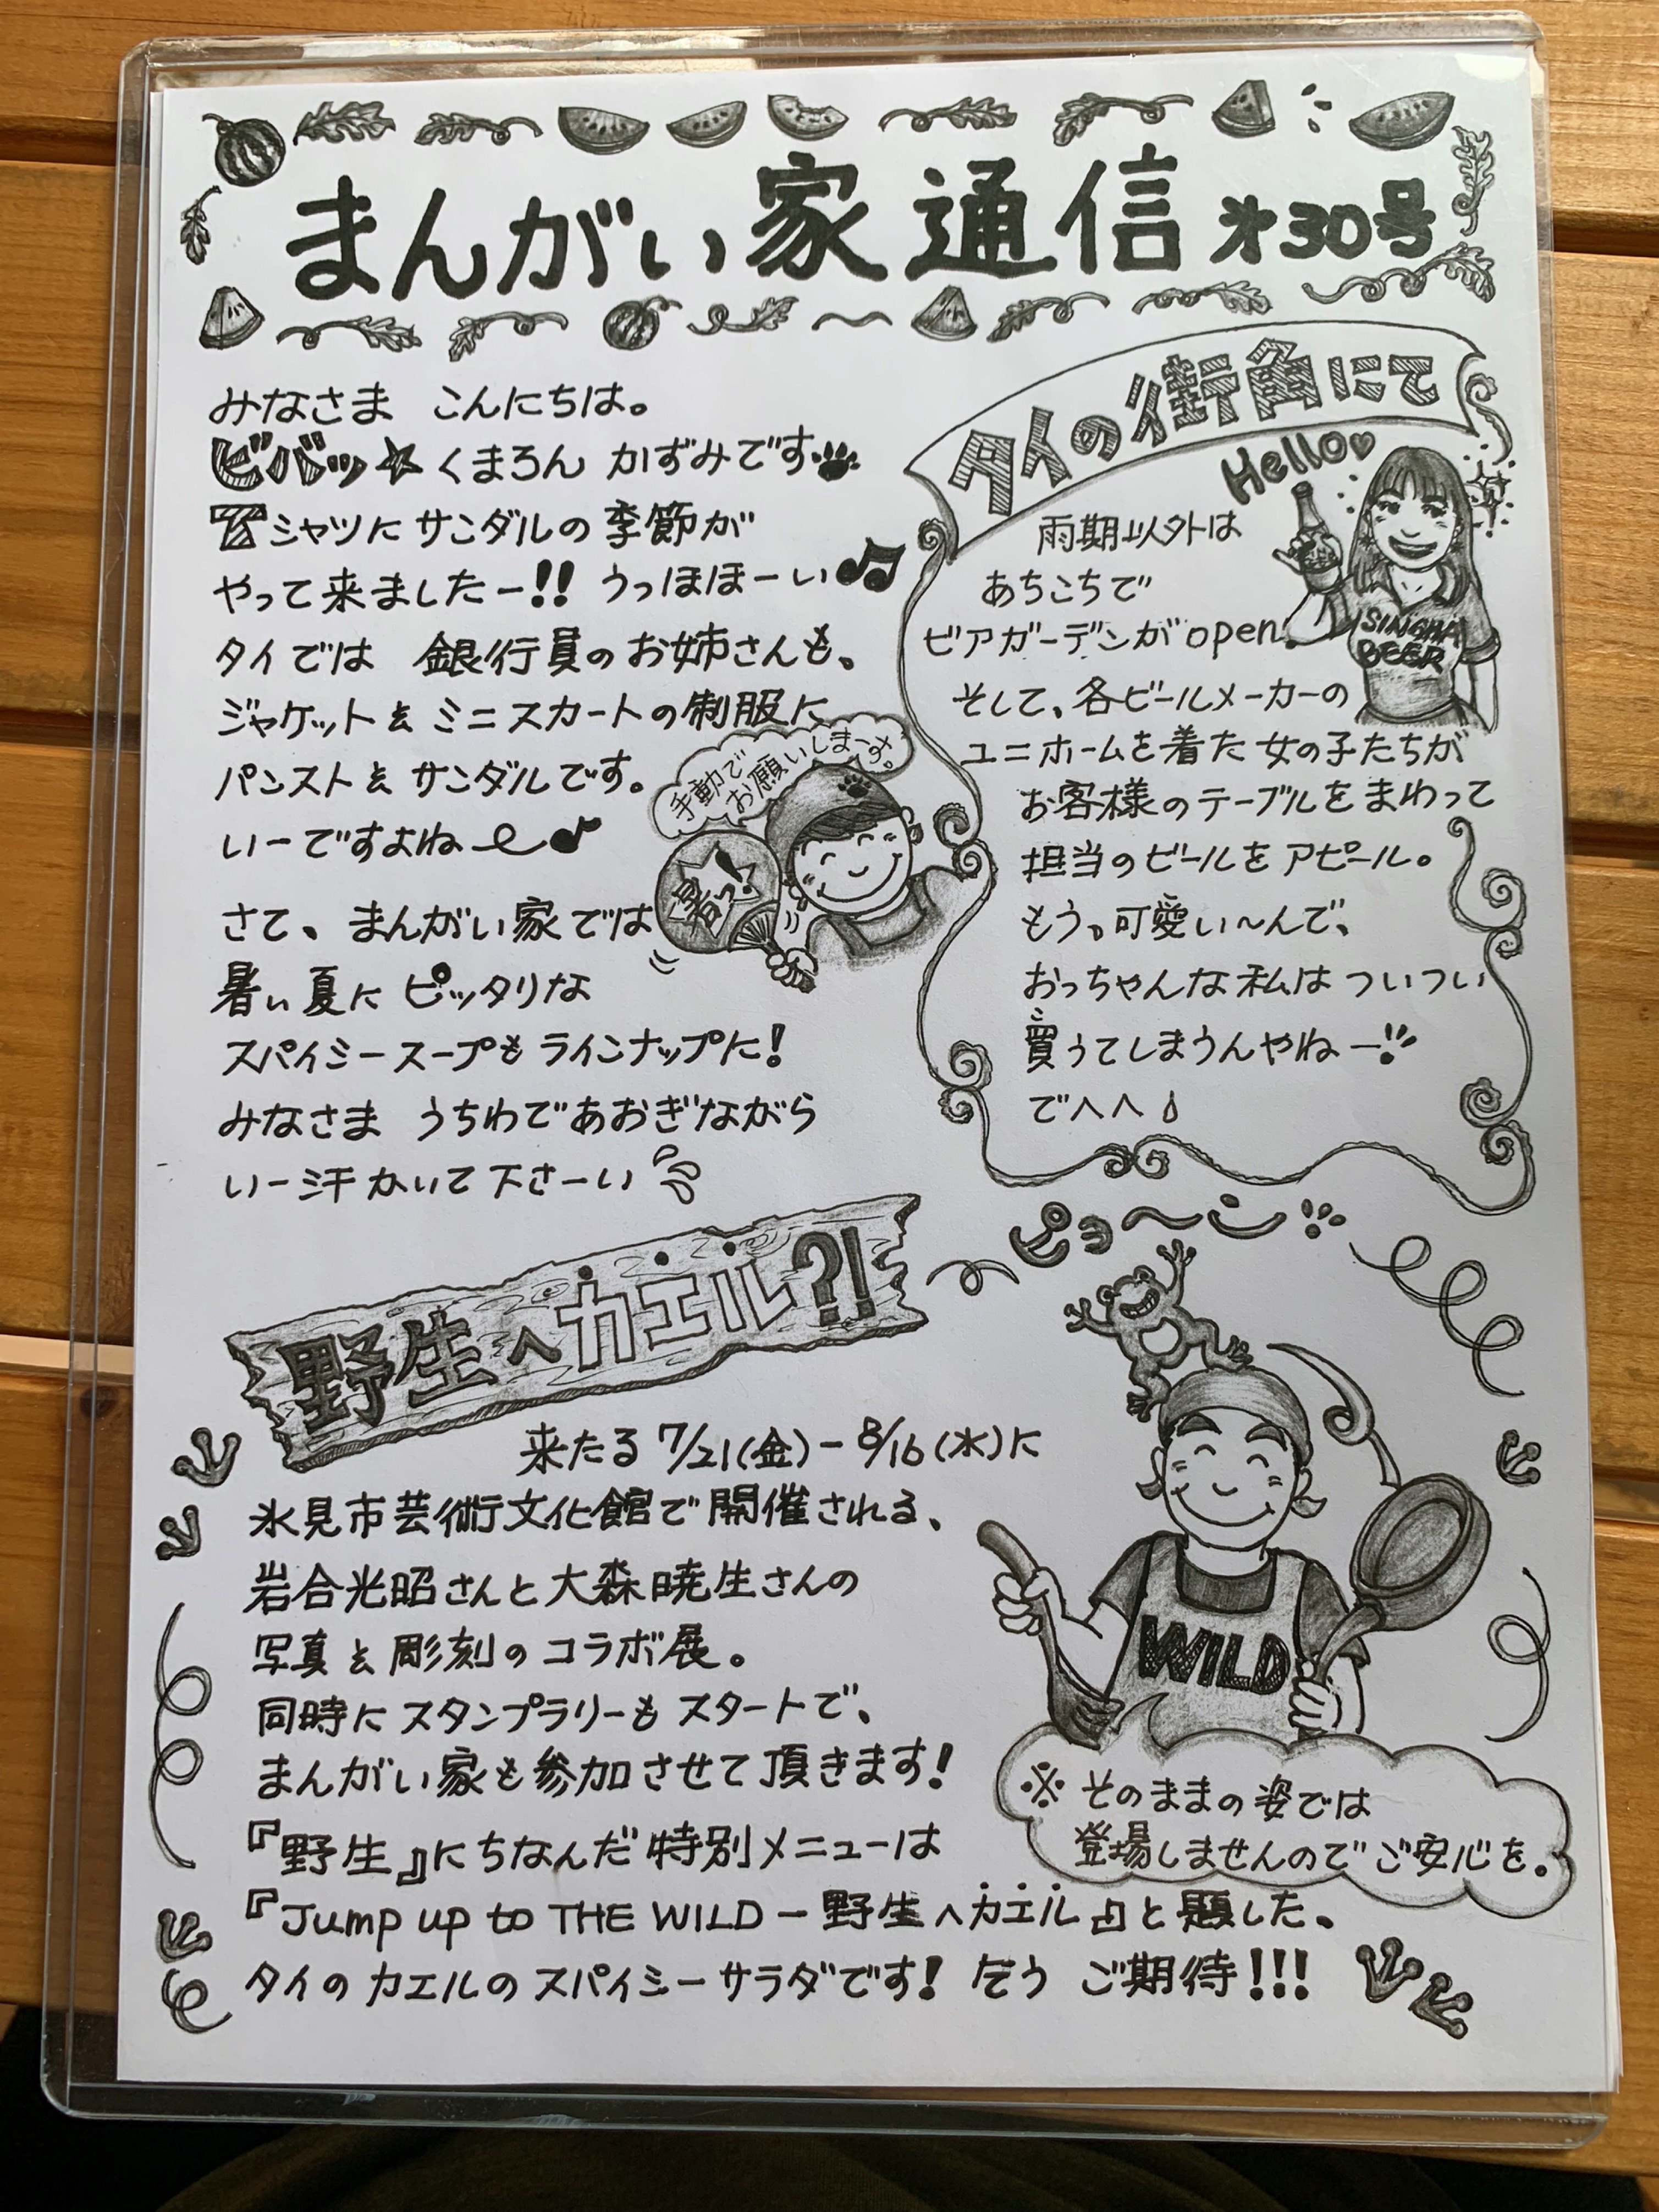 まんがい家通信 㐧30号
みなさま こんにちは。
ビバッ☆くまろん かずみです
Tシャツにサンダルの季節が
やって来ましたー!! うっほほーい♫
タイでは 銀行員のお姉さんも、
ジャケットとミニスカートの制服に
パンストとサンダルです。
いーですよね〜♪
手動で
お願いしまーす。
暑っ!
さて、まんがい家では
暑い夏にピッタリな
スパイシースープもラインナップに!
みなさま うちわであおぎながら
いー汗かいて下さーい
タイの街角にて
Hello♡
SINGHA
BEER
雨期以外は
あちこちで
ビアガーデンがopen.
そして、各ビールメーカーの
ユニホームを着た女の子たちが
お客様のテーブルをまわって
担当のビールをアピール。
もう。可愛い〜んで、
おっちゃんな私はついつい
買うてしまうんやねー!!
こ
でへへ
野生へカエル?!
ピョ〜ン
来たる 7/21(金)-8/16(水)に
氷見市芸術文化館で開催される、
岩合光昭さんと大森暁生さんの
写真と彫刻のコラボ展。
同時にスタンプラリーもスタートで、
まんがい家も参加させて頂きます!
『野生』にちなんだ特別メニューは
『Jump up to THE WILD-野生へカエル』と題した、
タイのカエルのスパイシーサラダです! どうご期待!!!
WILD
※そのままの姿では
登場しませんのでご安心を。